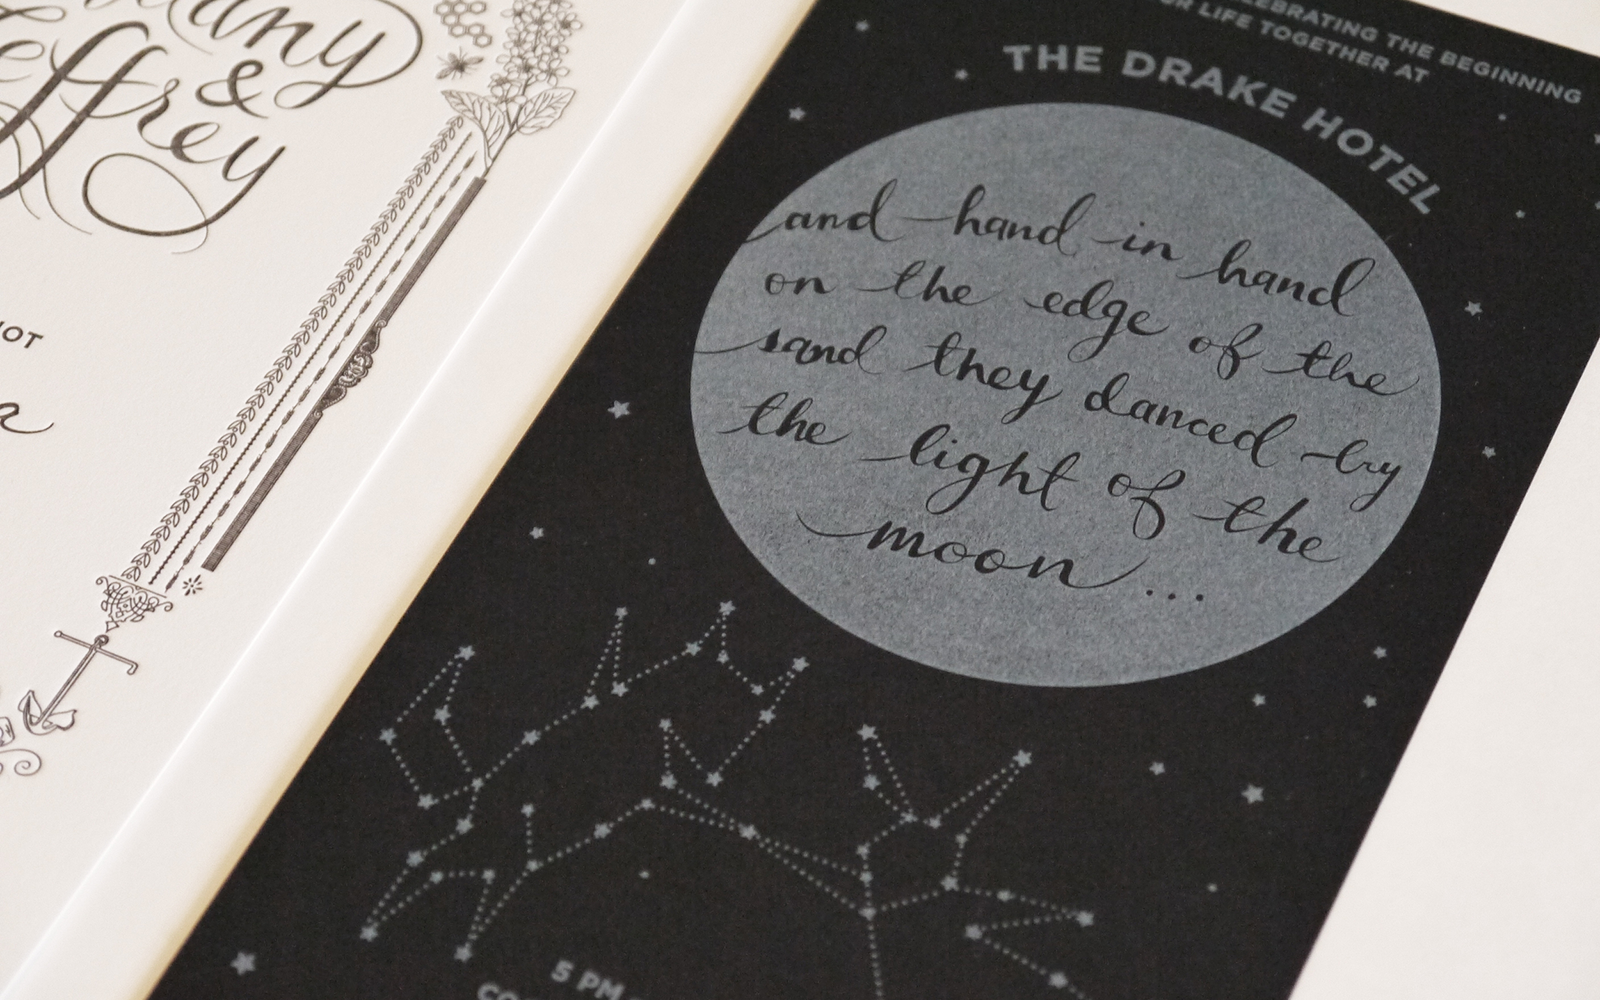 &
effrey
CELEBRATING THE BEGINNING
LIFE TOGETHER AT
THE DRAKE HOTEL
and hand in hand
on the edge of the
sand they danced by
the light of the
moon...
5 PM